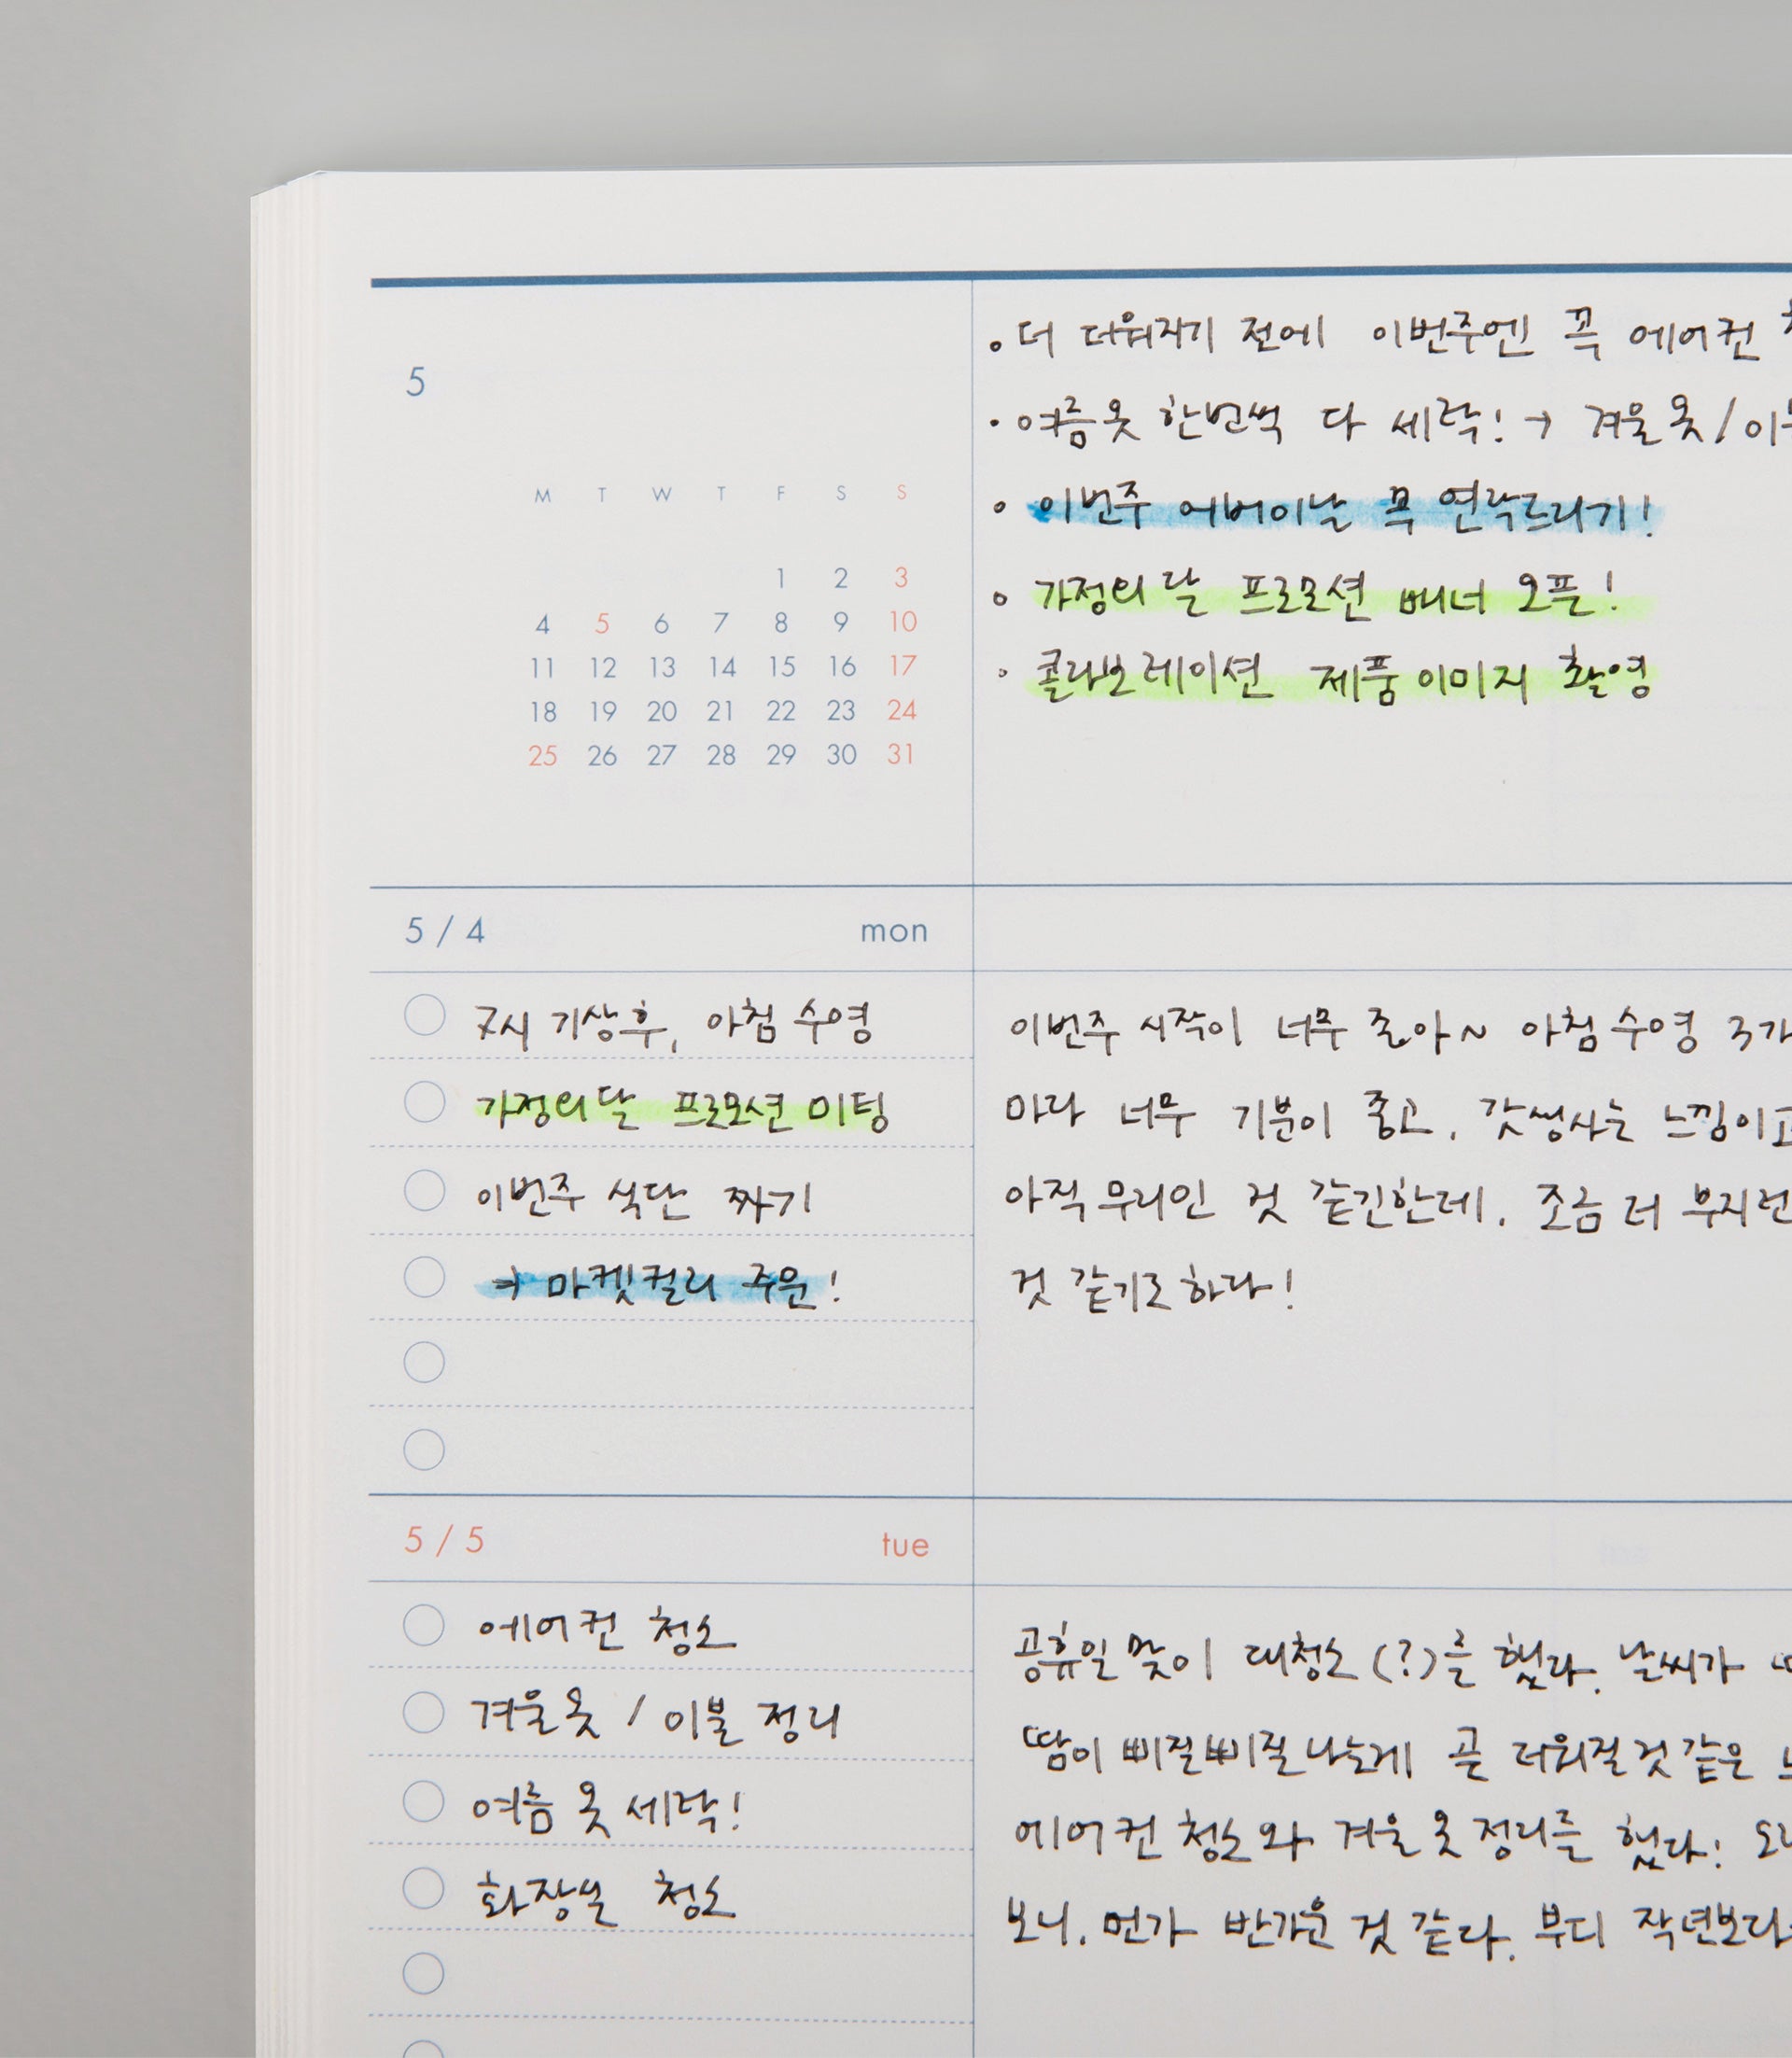 5
M T W T F S S
1 2 3
4 5 6 7 8 9 10
11 12 13 14 15 16 17
18 19 20 21 22 23 24
25 26 27 28 29 30 31
• 더 더워지기 전에 이번주엔 꼭 에어컨
• 여름옷 한번씩 다 세탁! → 겨울옷/이
• 이번주 어버이날 꼭 연락드리기!
• 가정의 달 프로모션 배너 오픈!
• 콜라보레이션 제품 이미지 촬영
5 / 4 mon
7시 기상후, 아침 수영
가정의달 프로모션 미팅
이번주 식단 짜기
→ 마켓컬리 주문!
이번주 시작이 너무 좋아~ 아침 수영 3가
마다 너무 기분이 좋고, 갓생사는 느낌이고
아직 무리인 것 같긴한데, 조금 더 부지런
것 같기도 하다!
5 / 5 tue
에어컨 청소
겨울옷 / 이불 정리
여름 옷 세탁!
화장실 청소
공휴일 맞이 대청소(?)를 했다. 날씨가
땀이 삐질삐질나는게 곧 더워질 것 같은
에어컨 청소와 겨울 옷 정리를 했다! 오
보니, 먼가 반가운 것 같다. 부디 작년보다